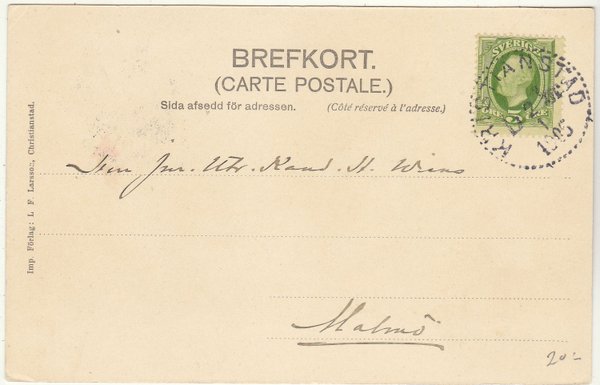 BREFKORT.
(CARTE POSTALE.)
Sida afsedd för adressen. (Côté réservé à l'adresse.)
SVERIGE
KRISTIANSTAD
1905
Herr Jur. Utr. Kand. H. Wiens
Malmö
Imp. Förlag: L. F. Larsson, Christianstad.
20:-